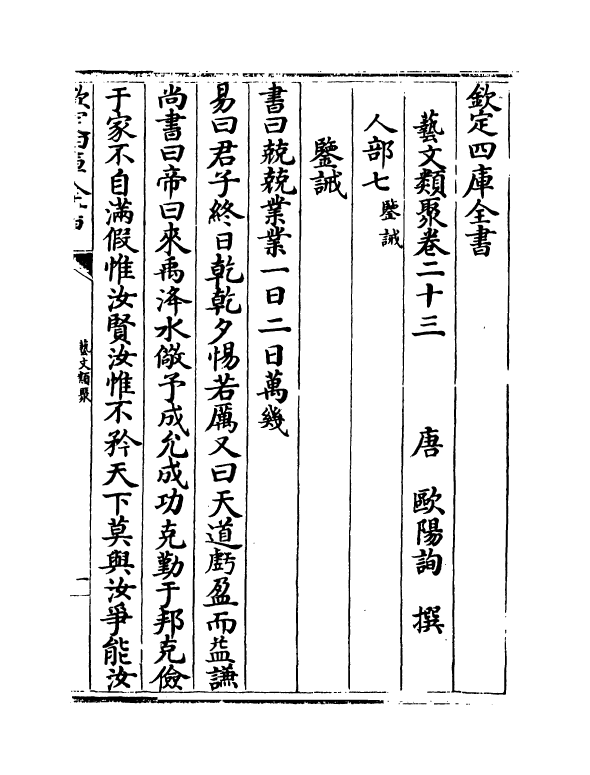 欽定四庫全書
藝文類聚卷二十三
唐 歐陽詢 撰
人部七 鑒誡
鑒誡
書曰兢兢業業一日二日萬幾
易曰君子終日乾乾夕惕若厲又曰天道虧盈而益謙
尚書曰帝曰來禹洚水儆予成允成功克勤于邦克儉
于家不自滿假惟汝賢汝惟不矜天下莫與汝爭能汝
藝文類聚
一